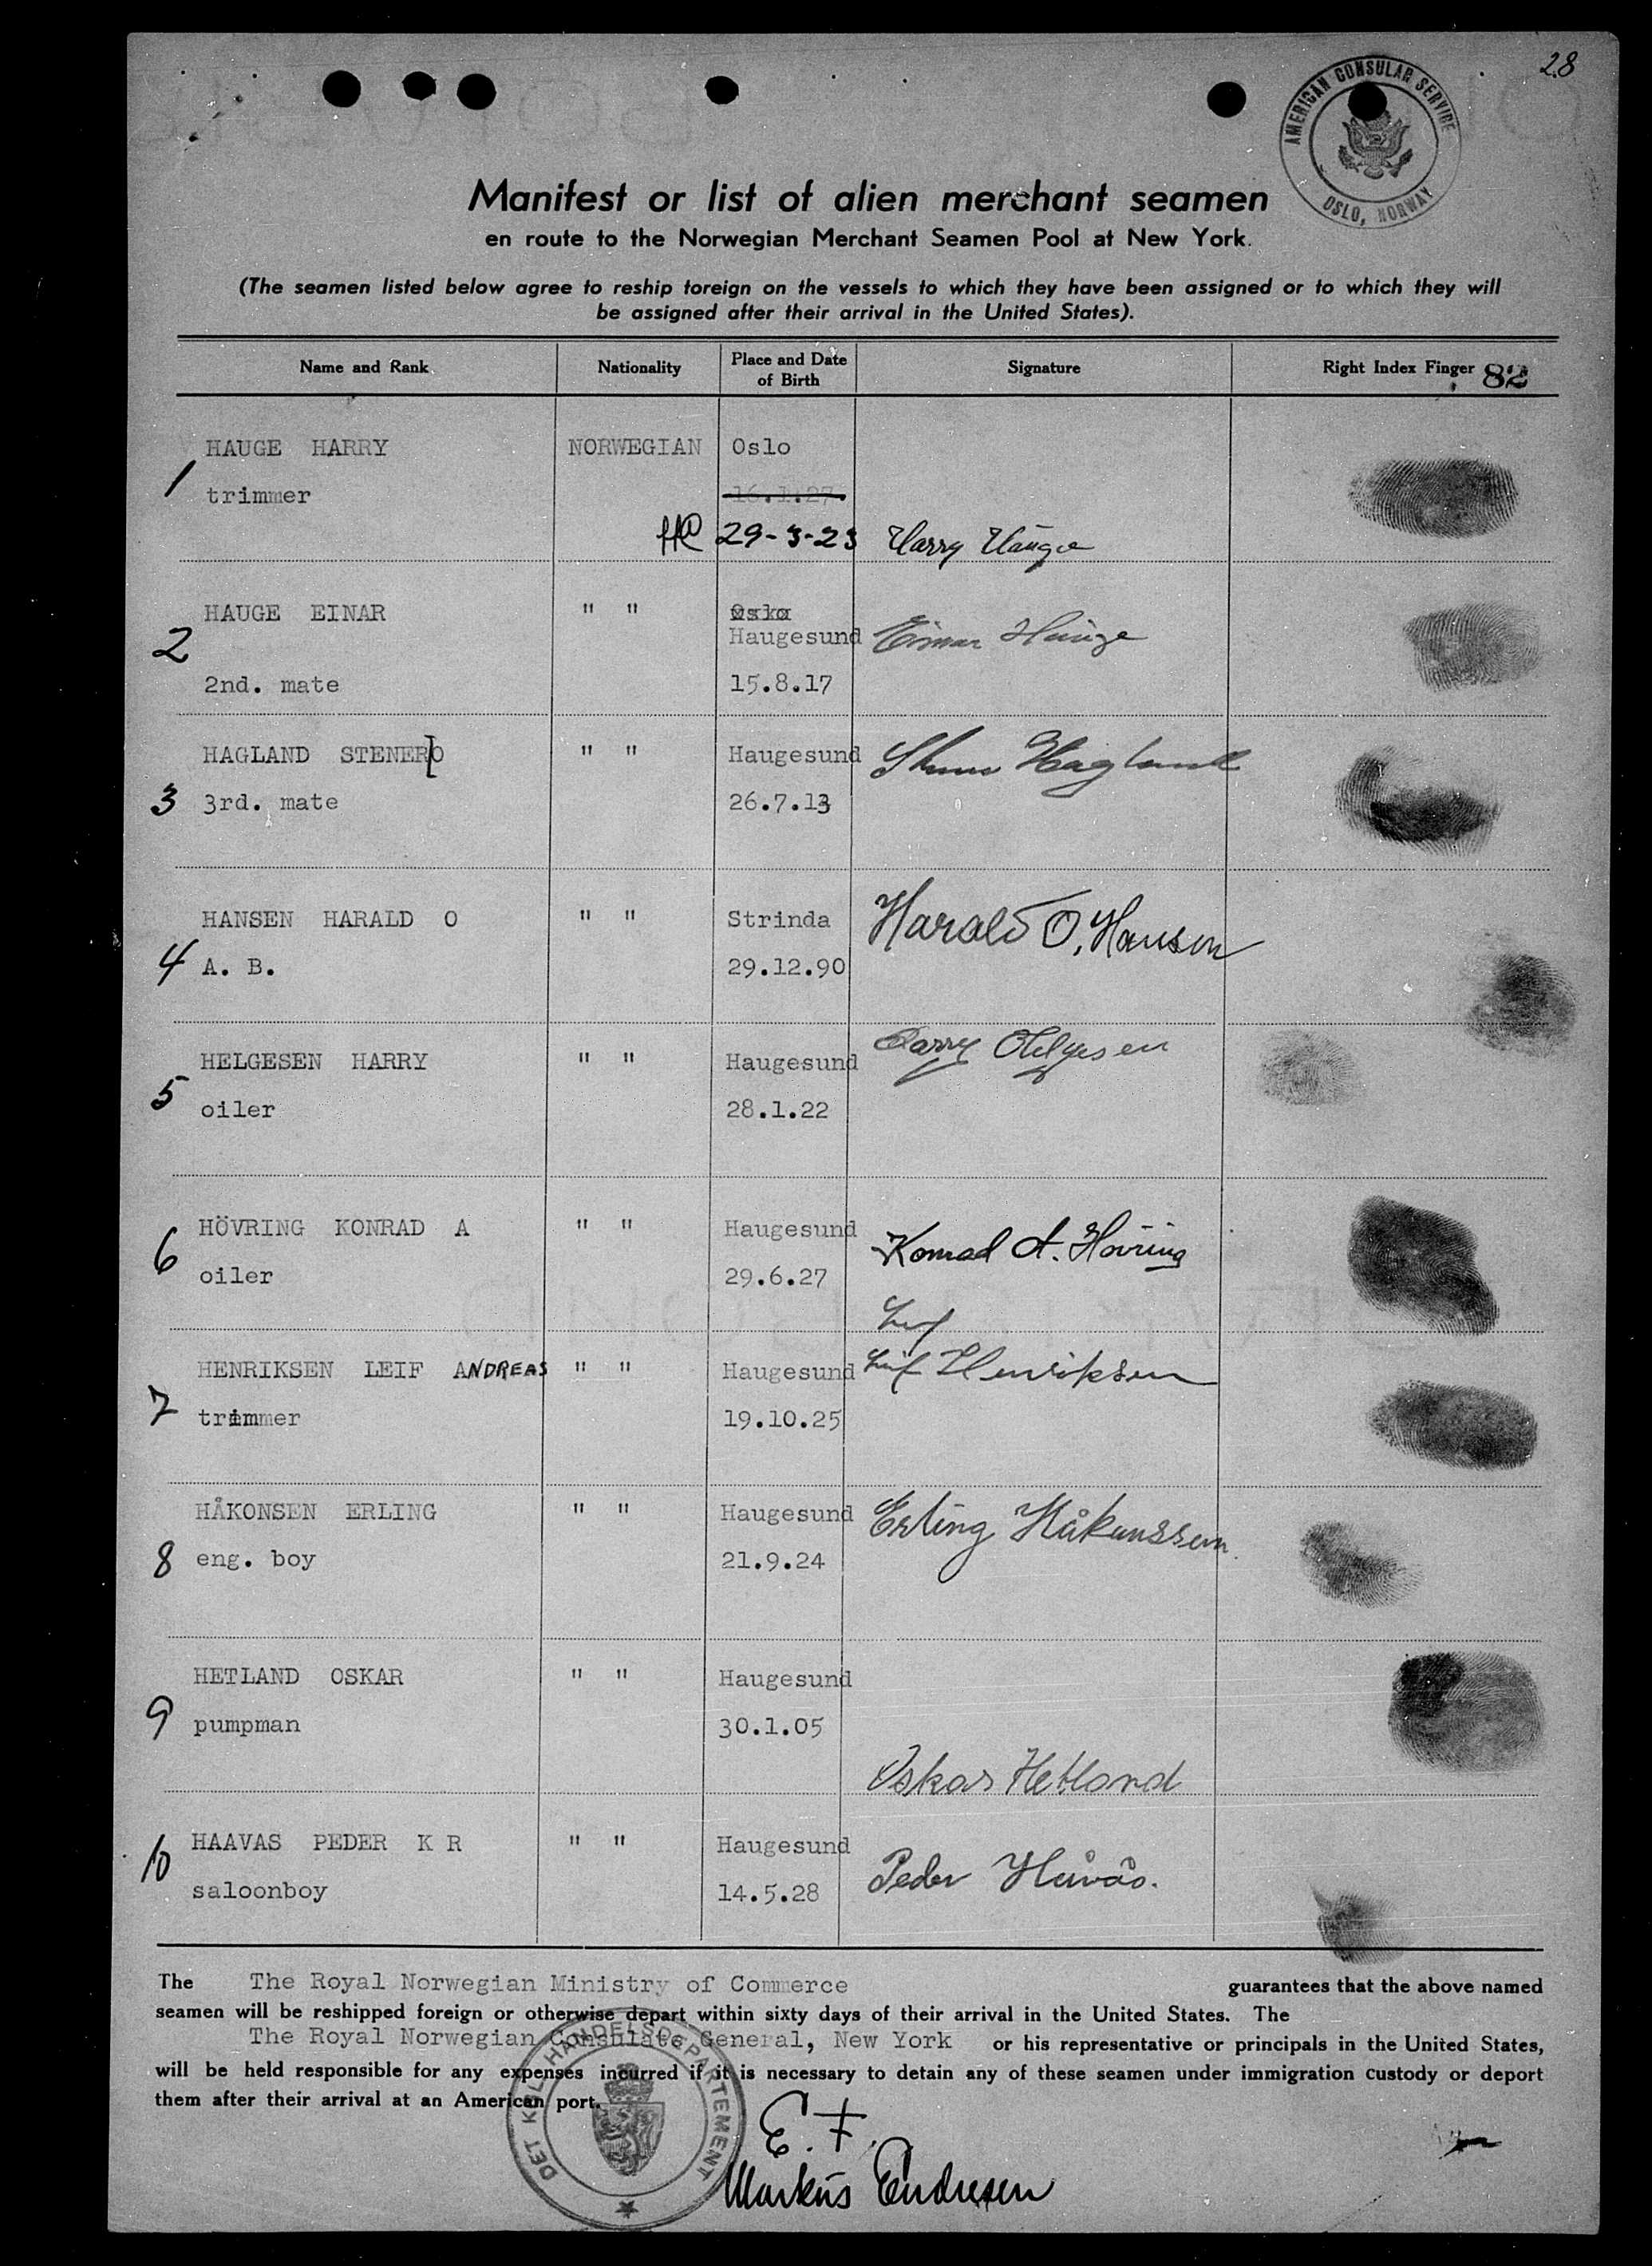 28
AMERICAN CONSULAR SERVICE
OSLO, NORWAY
Manifest or list of alien merchant seamen
en route to the Norwegian Merchant Seamen Pool at New York.
(The seamen listed below agree to reship foreign on the vessels to which they have been assigned or to which they will
be assigned after their arrival in the United States).
Name and Rank Nationality Place and Date of Birth Signature Right Index Finger 82
HAUGE HARRY NORWEGIAN Oslo
1 trimmer 16.1.27.
29-3-23 Harry Hauge
HAUGE EINAR " " Oslo
2 Haugesund Einar Hauge
2nd. mate 15.8.17
HAGLAND STENER O " " Haugesund Hagland
3 3rd. mate 26.7.13
HANSEN HARALD O " " Strinda Harald O. Hansen
4 A. B. 29.12.90
HELGESEN HARRY " " Haugesund Harry Helgesen
5 oiler 28.1.22
HÖVRING KONRAD A " " Haugesund Konrad A. Hövring
6 oiler 29.6.27
Leif
HENRIKSEN LEIF ANDREAS " " Haugesund Leif Henriksen
7 trimmer 19.10.25
HÅKONSEN ERLING " " Haugesund Erling Håkonssen
8 eng. boy 21.9.24
HETLAND OSKAR " " Haugesund
9 pumpman 30.1.05
Oskar Hetland
HAAVAS PEDER K R " " Haugesund Peder Håvås.
10 saloonboy 14.5.28
The The Royal Norwegian Ministry of Commerce guarantees that the above named
seamen will be reshipped foreign or otherwise depart within sixty days of their arrival in the United States. The
The Royal Norwegian Consulate General, New York or his representative or principals in the United States,
will be held responsible for any expenses incurred if it is necessary to detain any of these seamen under immigration custody or deport
them after their arrival at an American port.
DET KGL. HANDELSDEPARTEMENT
E. F.
Markus Endresen